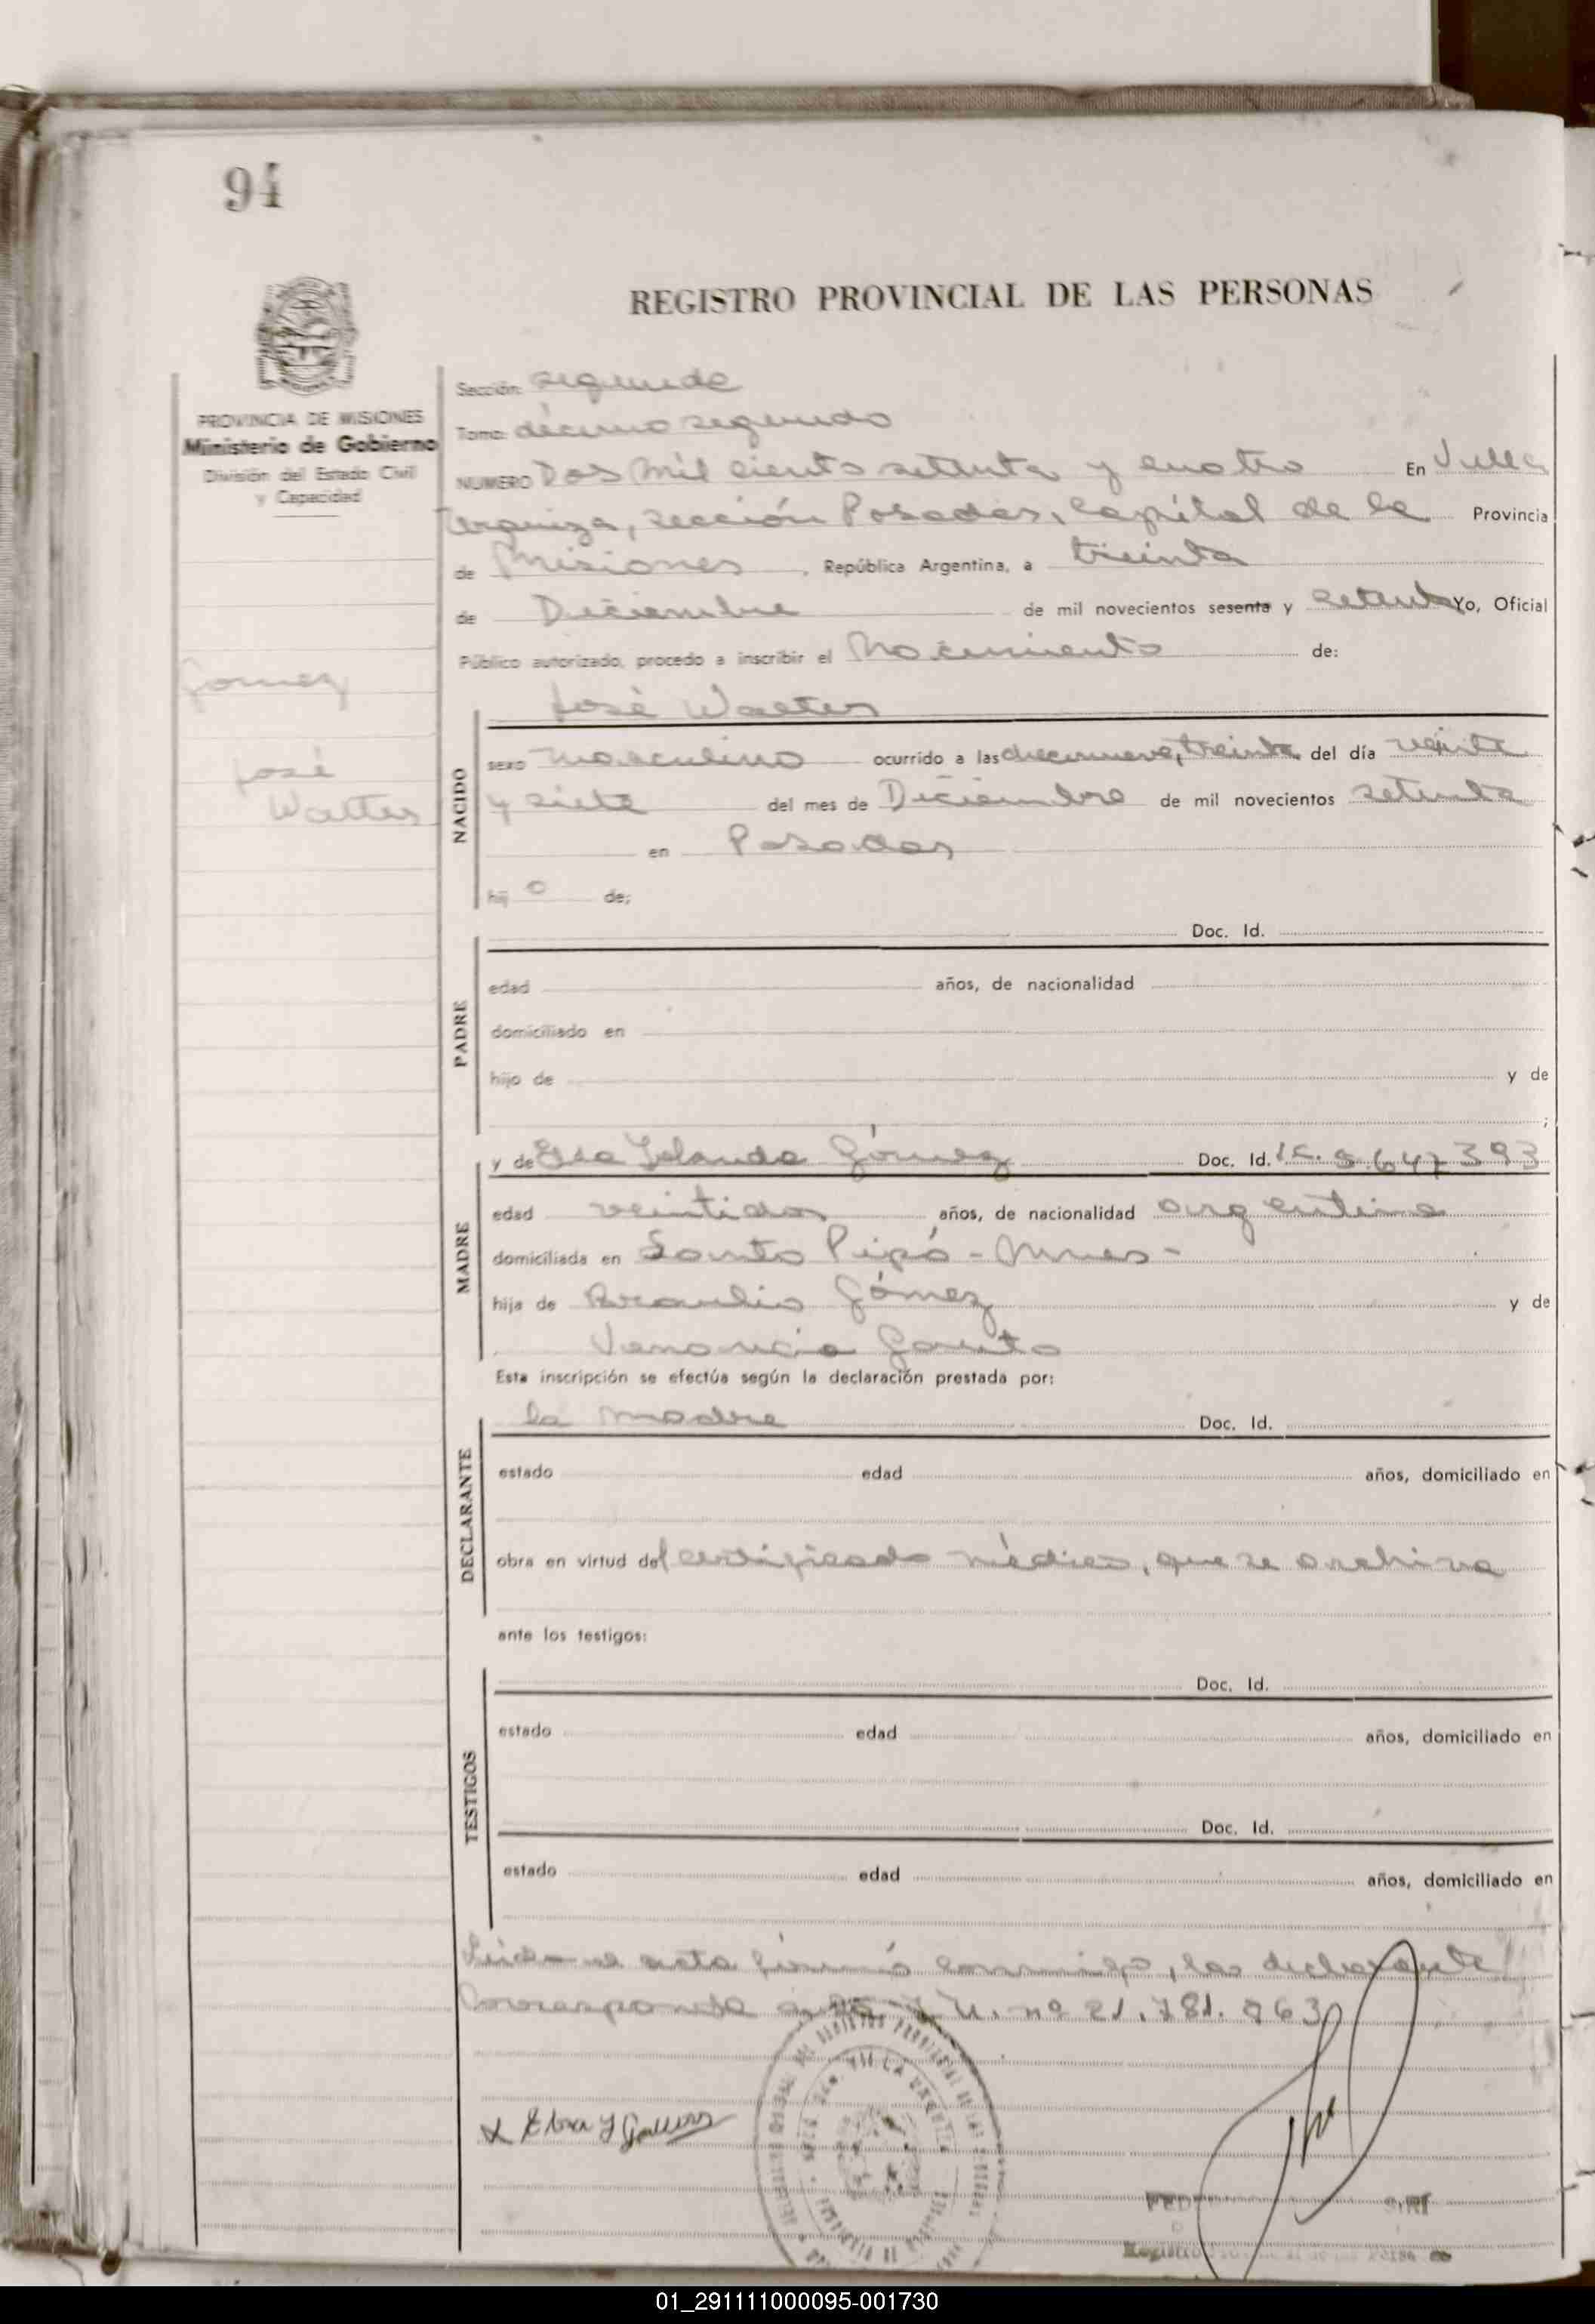 94
REGISTRO PROVINCIAL DE LAS PERSONAS
PROVINCIA DE MISIONES
Ministerio de Gobierno
División del Estado Civil
y Capacidad
Gomez
José
Walter
Sección: segunda
Tomo: décimo segundo
NUMERO Dos mil ciento setenta y cuatro En Villa
Urquiza, sección Posadas, Capital de la Provincia
de Misiones, República Argentina, a treinta
de Diciembre de mil novecientos sesenta y setenta Yo, Oficial
Público autorizado, procedo a inscribir el Nacimiento de:
José Walter
NACIDO
sexo masculino ocurrido a las diecinueve, treinta del día veinte
y siete del mes de Diciembre de mil novecientos setenta
en Posadas
hij o de;
Doc. Id.
PADRE
edad años, de nacionalidad
domiciliado en
hijo de y de
;
MADRE
y de Yolanda Gómez Doc. Id. 5.647393
edad veintidos años, de nacionalidad argentina
domiciliada en Santo Pipó - Mnes -
hija de Braulio Gómez y de
Venancia
Esta inscripción se efectúa según la declaración prestada por:
DECLARANTE
la madre Doc. Id.
estado edad años, domiciliado en
obra en virtud del certificado médico, que se archiva
ante los testigos:
TESTIGOS
Doc. Id.
estado edad años, domiciliado en
Doc. Id.
estado edad años, domiciliado en
Leida el acta firmó conmigo, la declarante
Corresponde nº 21.781.963
01_291111000095-001730